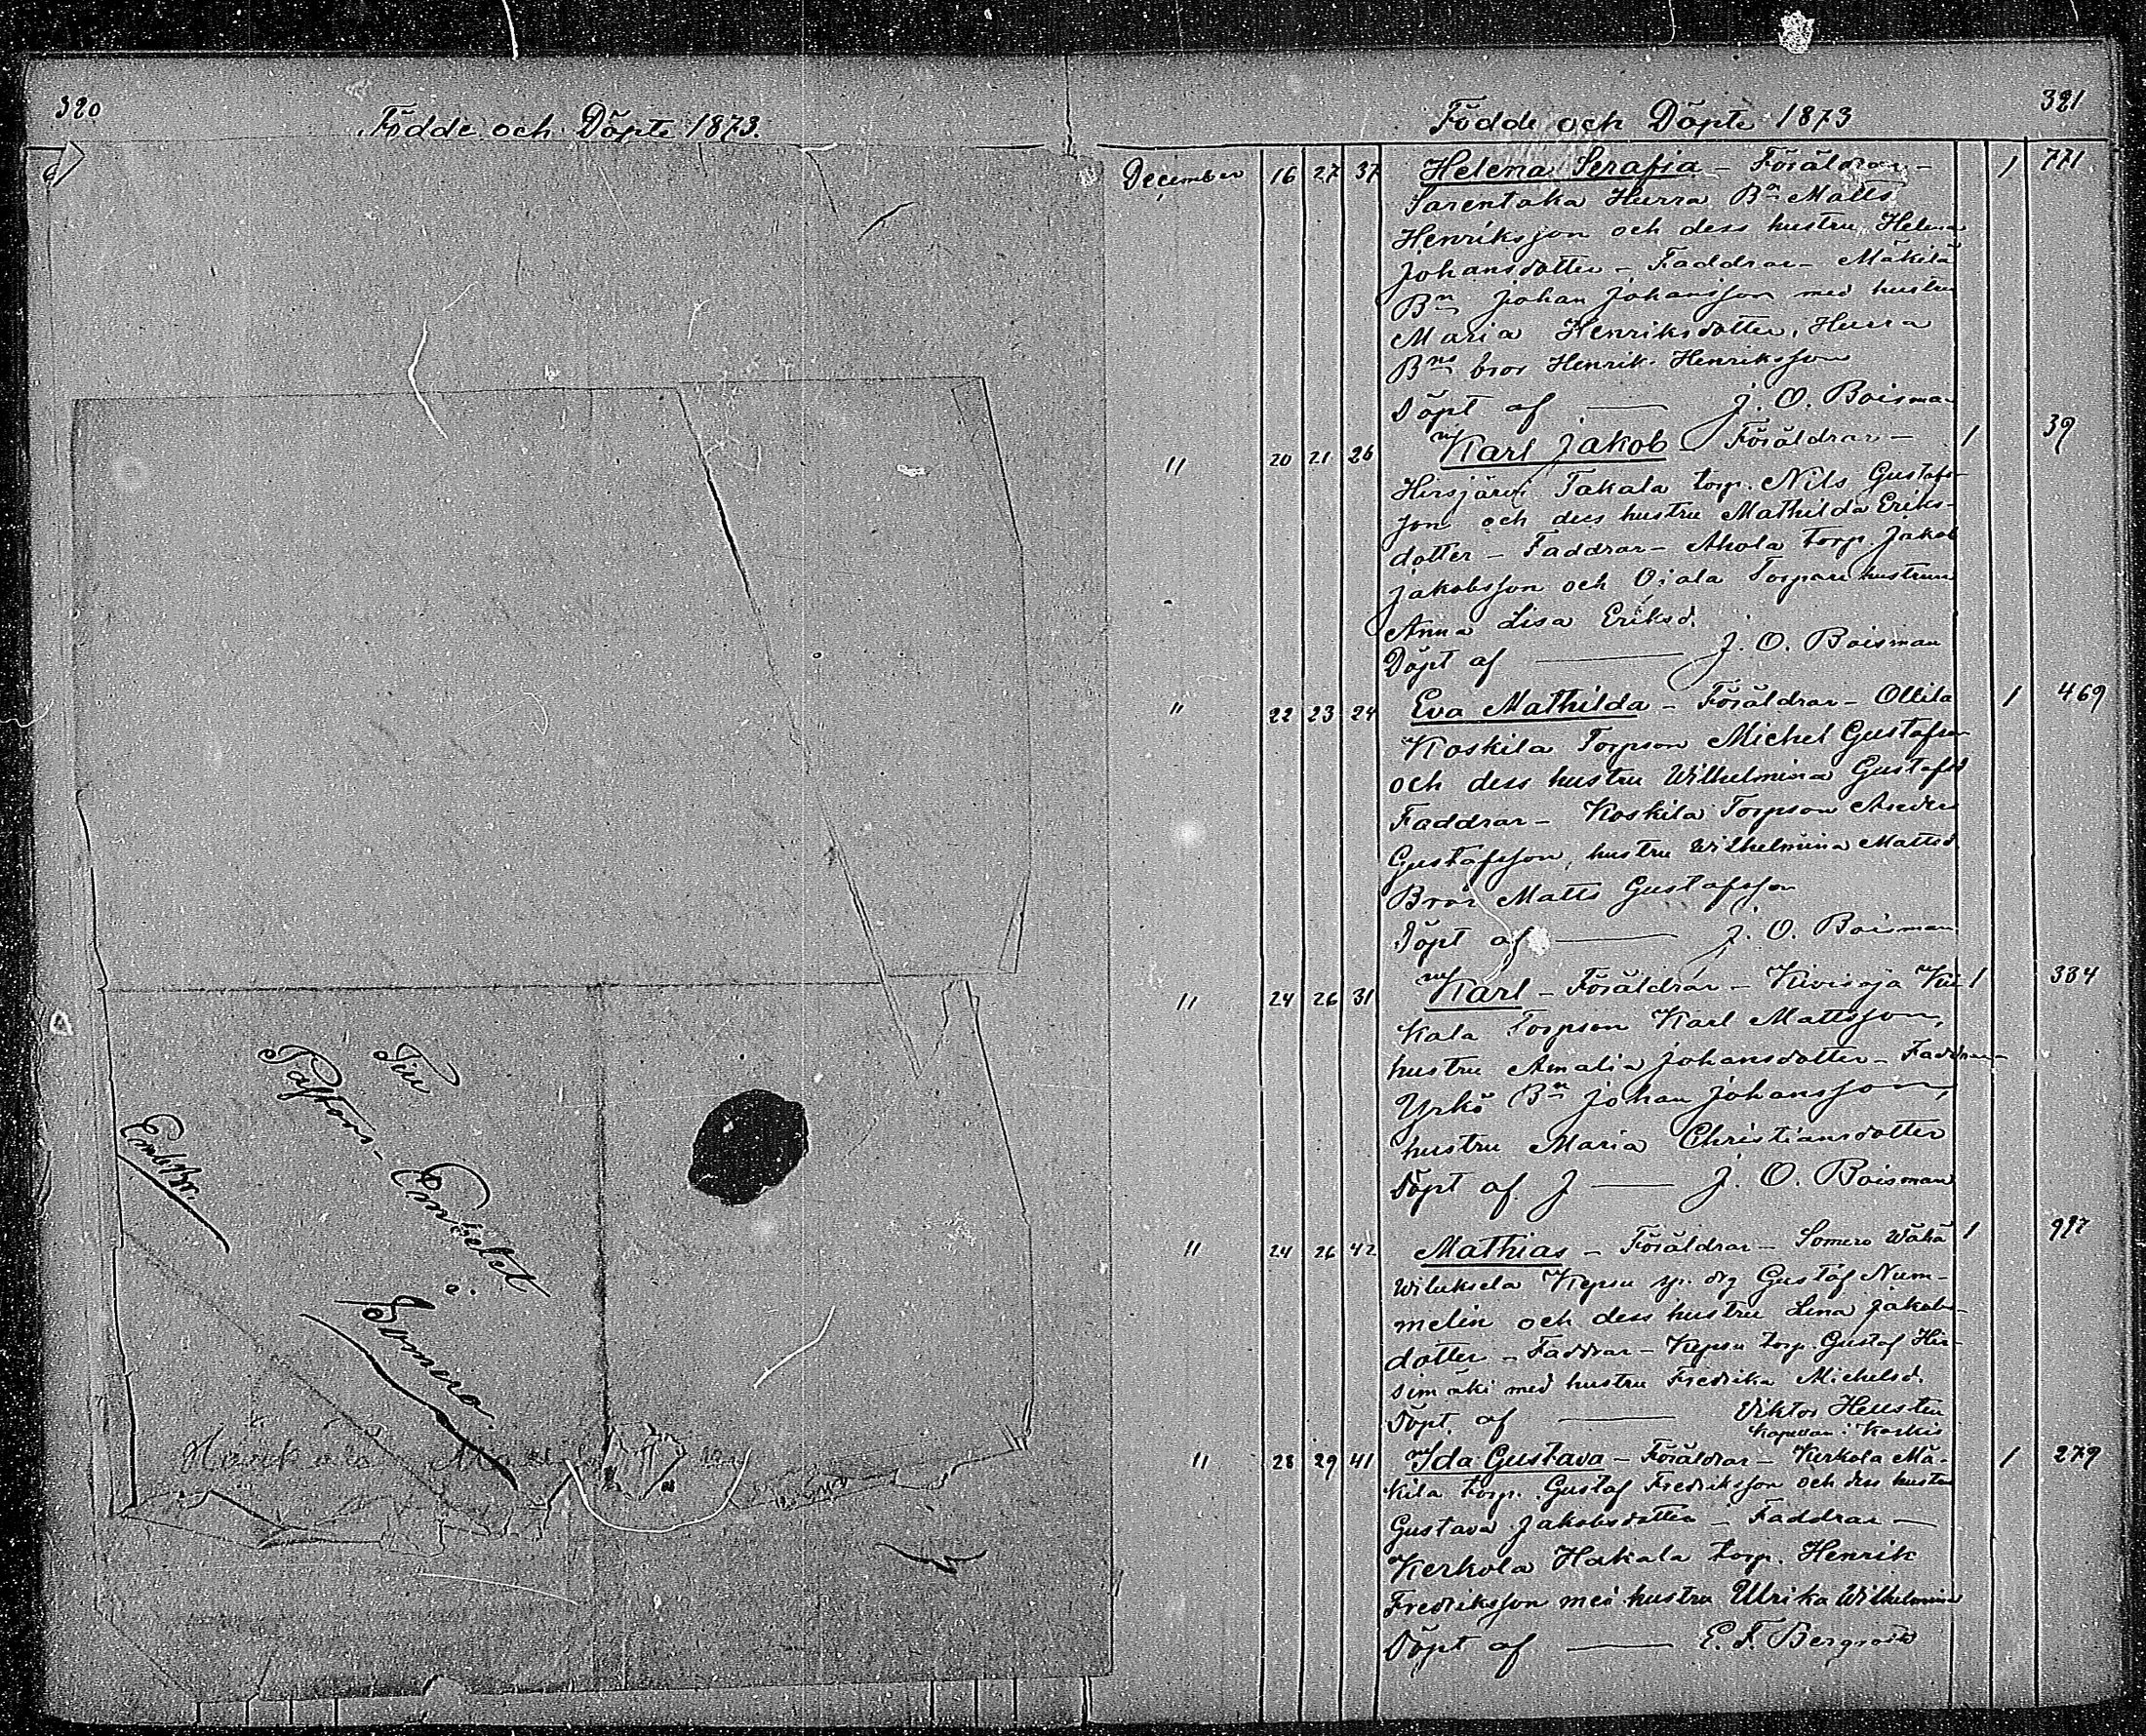 320
Födde och Döpte 1873.
Till
Pastors-Embetet
i
Somero.
Emb.br.
Födde och Döpte 1873
321
December 16 27 37 Helena Serafia - Föräldrar - 1 771
Sarentaka Hurra Bn Matts
Henriksson och dess hustru Helena
Johansdotter - Faddrar - Mäkilä
Bn Johan Johansson med hustru
Maria Henriksdotter, Hurra
Bns bror Henrik Henriksson
Döpt af — J. O. Boisman
" 20 21 26 Karl Jakob - Föräldrar - 1 39
Hirsjärvi Takala torp. Nils Gustafs-
son och dess hustru Mathilda Eriks-
dotter - Faddrar - Ahola torp. Jakob
Jakobsson och Ojala Torpare hustrun
Anna Lisa Eriksd.
Döpt af — J. O. Boisman
" 22 23 24 Eva Mathilda - Föräldrar - Ollila 1 469
Koskila Torpson Michel Gustafsson
och dess hustru Wilhelmina Gustafsd
Faddrar - Koskila Torpson
Gustafsson, hustru Wilhelmina Mattsd.
Bror Matts Gustafsson
Döpt af — J. O. Boisman
" 24 26 31 Karl - Föräldrar - Kivisoja 1 384
kala Torpson Karl Mattsson,
hustru Amalia Johansdotter - Faddrar -
Yrkö Bn Johan Johansson,
hustru Maria Christiansdotter
Döpt af J — J. O. Boisman
" 24 26 42 Mathias - Föräldrar - Somero Wähä 1 997
wiluksela Kepsu sp. drg Gustaf Num-
melin och dess hustru Lena Jakobs-
dotter - Faddrar - Kepsu torp. Gustaf Hir-
simäki med hustru Fredrika Michelsd.
Döpt af — Viktor Hellsten
Kapellan i Koskis
" 28 29 41 Ida Gustava - Föräldrar - Kerkola Mä- 1 279
kilä torp. Gustaf Fredriksson och dess hustru
Gustava Jakobsdotter - Faddrar -
Kerkola Hakala torp. Henrik
Fredriksson med hustru Ulrika Wilhelmina
Döpt af — E. F. Bergroth